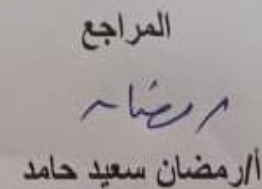 المراجع
رمضان
أ/رمضان سعيد حامد